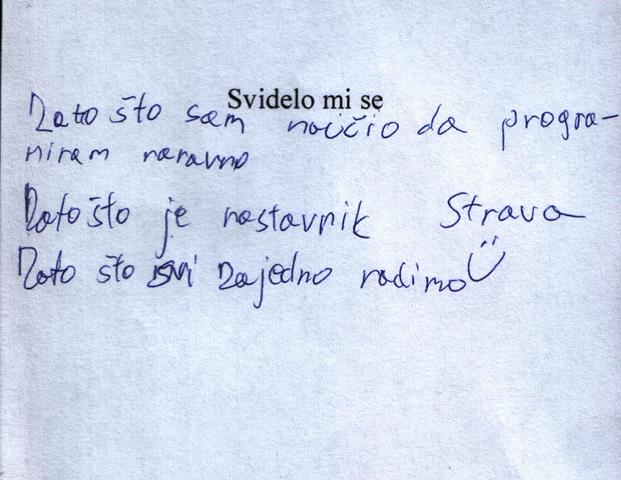 Svidelo mi se
Zato što sam naučio da progra-
miram naravno
Zato što je nastavnik Strava
Zato što svi zajedno radimo